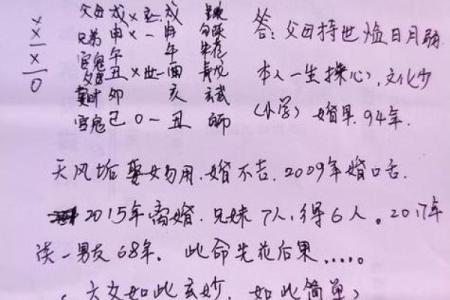 父母 戌 x 应 戌 答:父母持世临日月弱
x 兄弟 申 x 一 酉 勾陈 本人一生操心,文化少
x 官鬼 午 午 朱雀
x 父母 丑 x 世 一 酉 青龙 (小学) 婚早.94年.
0 妻财 卯 亥 玄武
官鬼 巳 0 一 丑
天风姤娶女勿用.婚不吉.2009年婚口舌.
2015年离婚.兄妹7人,得6人。2017年
谈一男友68年。此命先花后果.....
(六爻如此玄妙,如此简单)